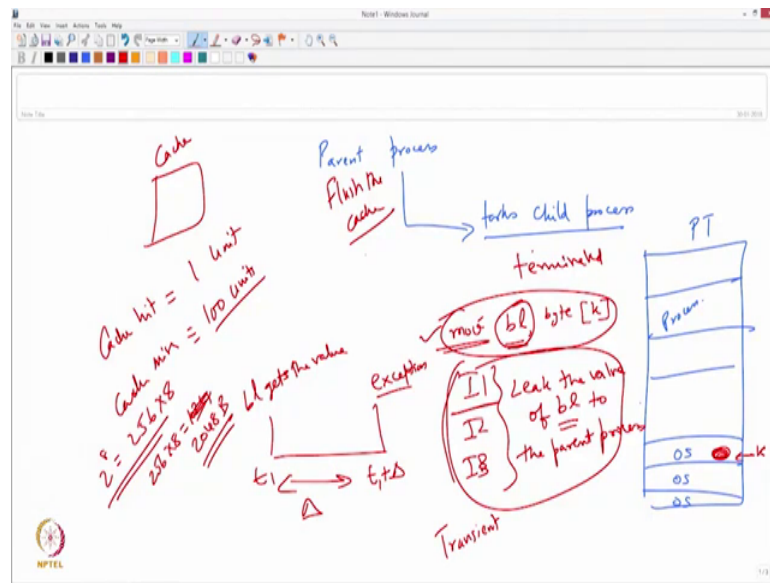 Note1 - Windows Journal
File Edit View Insert Actions Tools Help
Page Width
B I
Note Title
20-01-2018
Cache
Parent process
Flush the
cache
forks child process
PT
terminated
Cache hit = 1 unit
Cache miss = 100 units
mov bl byte [k]
Process
bl gets the value
exception
2⁸ = 256x8
256x8=
2048 B
I1
I2
I3
Leak the value
of bl to
the parent process
OS
K
OS
OS
t1
t1+Δ
Δ
Transient
NPTEL